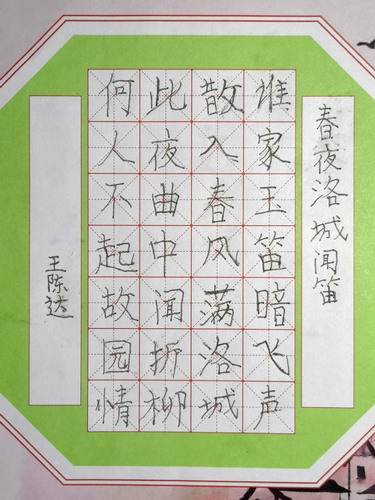 春夜洛城闻笛
谁家玉笛暗飞声
散入春风满洛城
此夜曲中闻折柳
何人不起故园情
王陈达